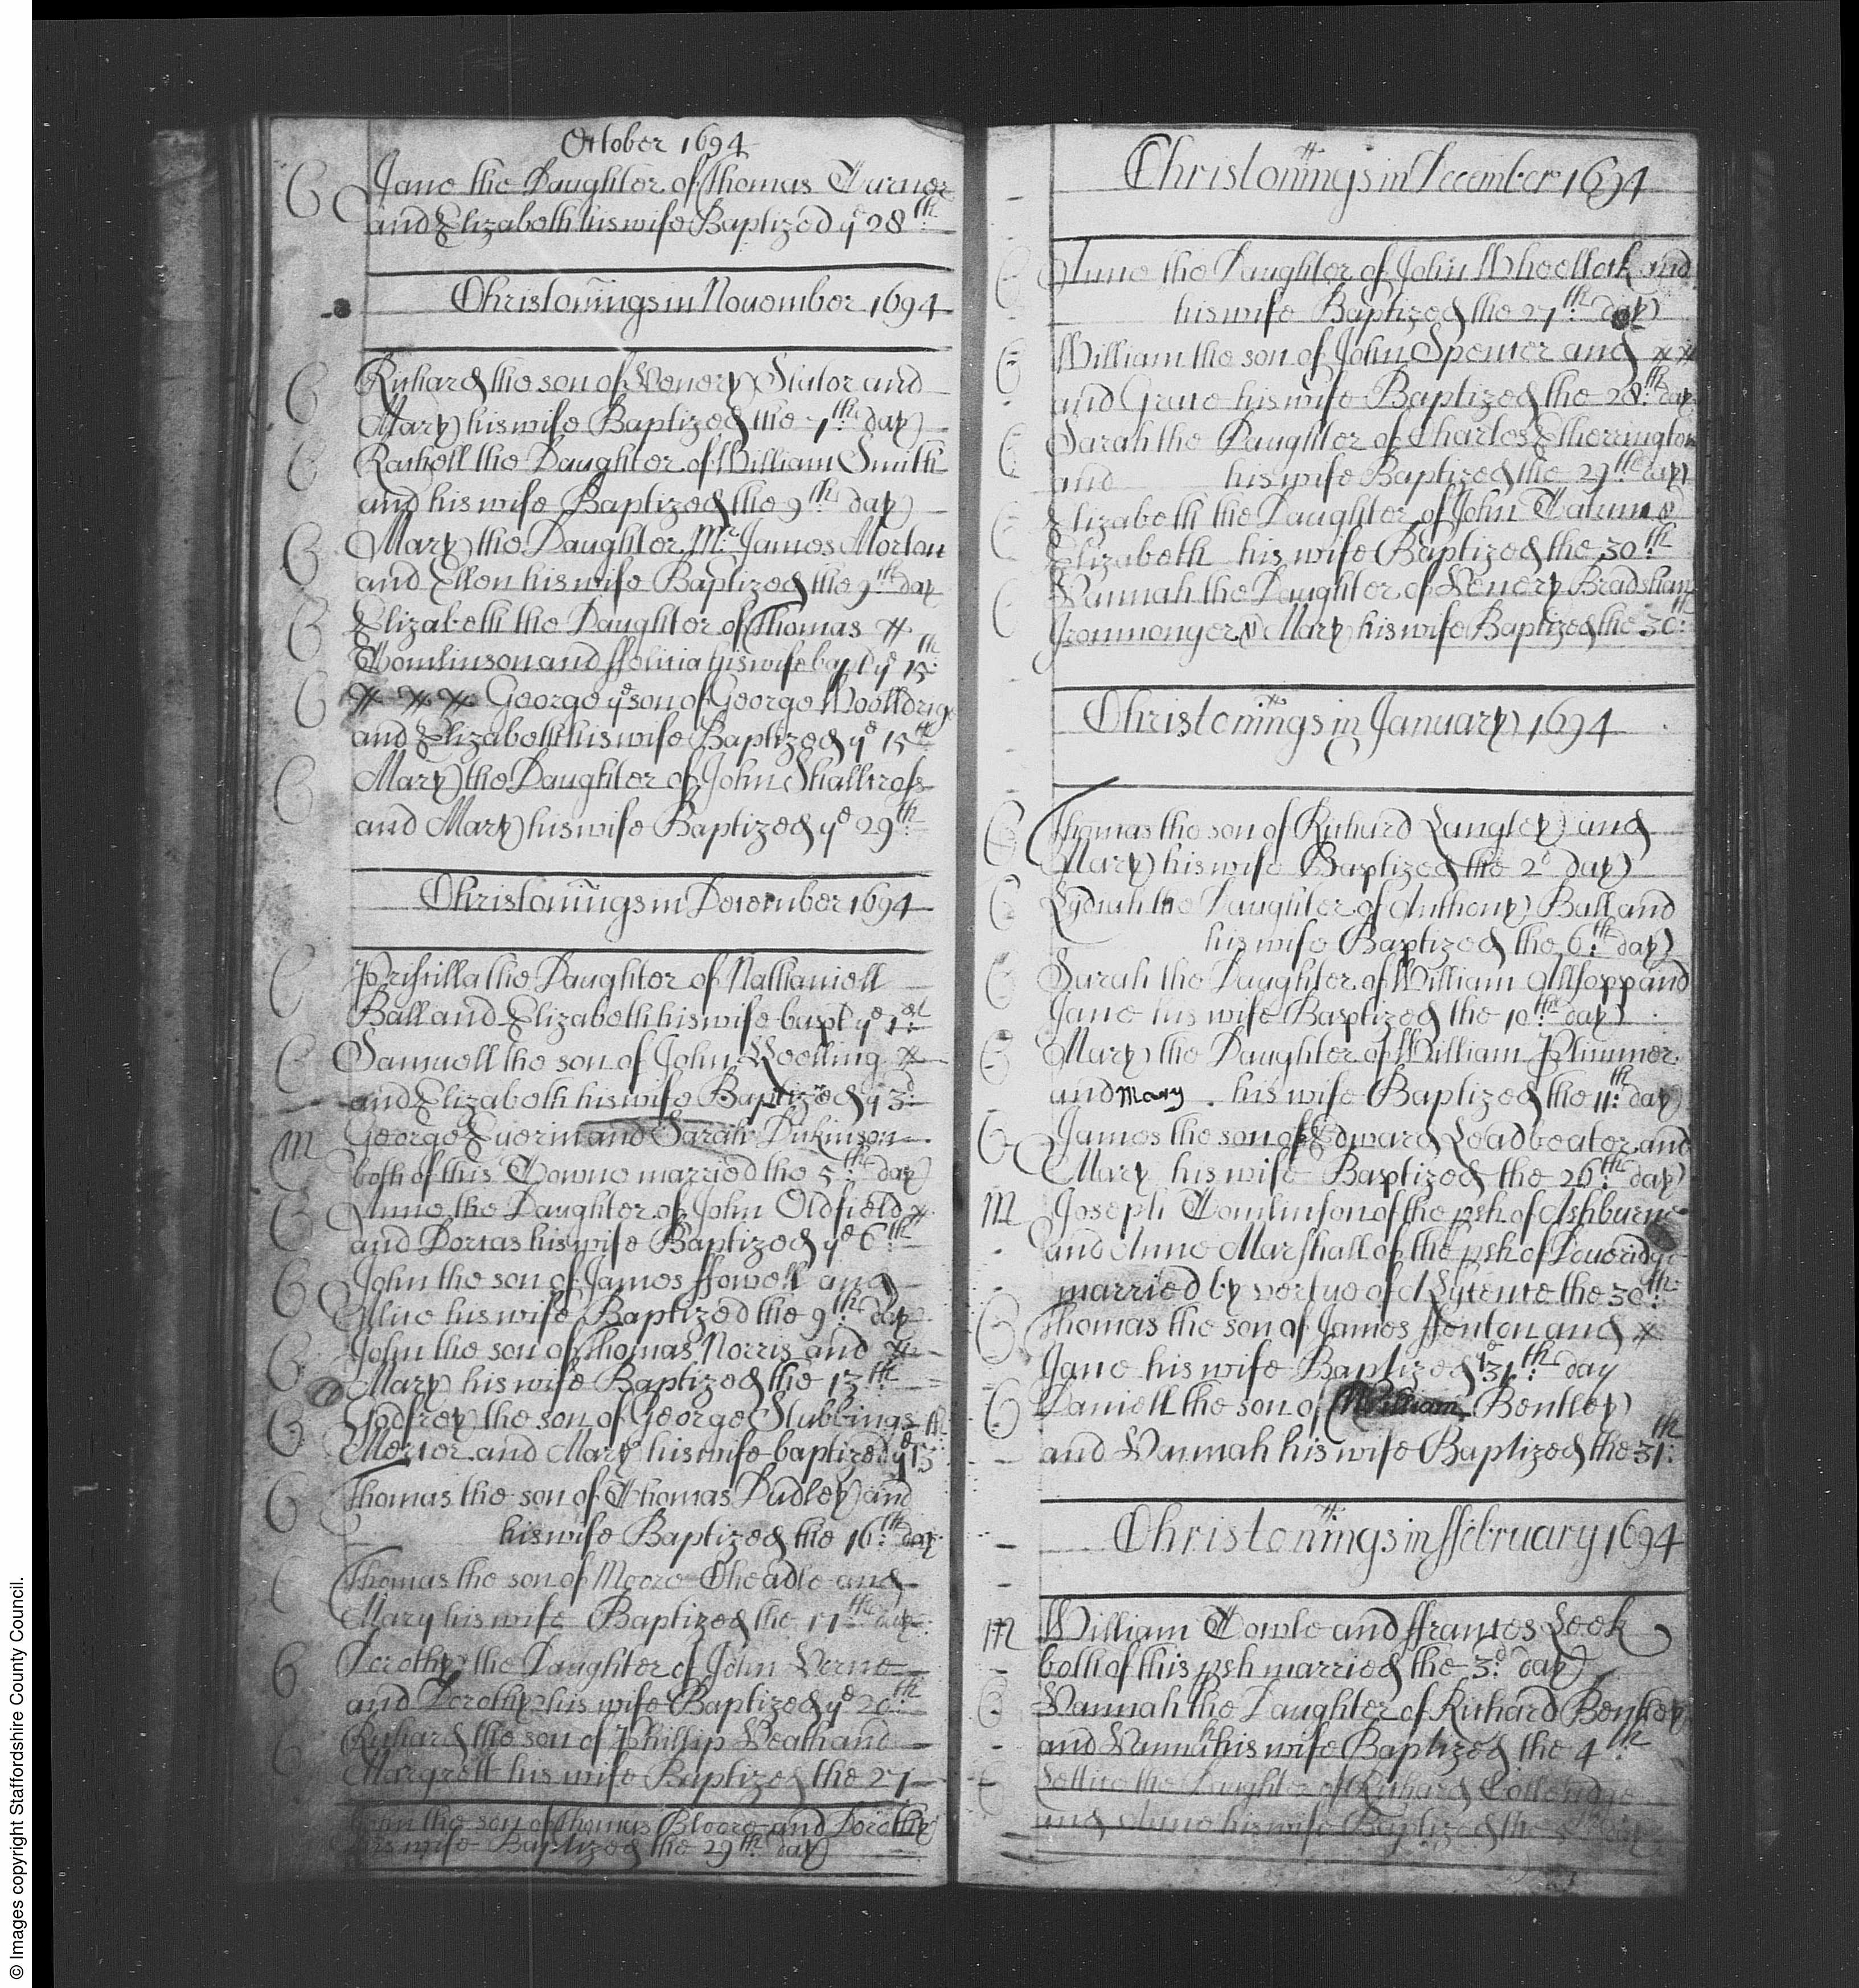 October 1694
Jane the Daughter of Thomas Turner
and Elizabeth his wife Baptized ye 28th
Christonings in November 1694
Richard the son of Henery Slator and
Mary his wife Baptized the 7th day
Rachell the Daughter of William Smith
and his wife Baptized the 9th day
Mary the Daughter Mr James Morton
and Ellen his wife Baptized the 9th day
Elizabeth the Daughter of Thomas
Tomlinson and ffelicia his wife bapt ye 15th
George ye son of George Woolldrige
and Elizabeth his wife Baptized ye 15th
Mary the Daughter of John Shallcross
and Mary his wife Baptized ye 29th
Christonings in December 1694
Prissilla the Daughter of Nathaniell
Ball and Elizabeth his wife bapt ye 1st
Samuell the son of John Keelling
and Elizabeth his wife Baptized ye 3d
M George and Sarah Dickinson
both of this Towne married the 5th day
Anne the Daughter of John Oldfield
and Dorcas his wife Baptized ye 6th
John the son of James ffowell and
Allice his wife Baptized the 9th day
John the son of Thomas Norris and
Mary his wife Baptized the 13th
Godfrey the son of George Stubbings
Mercer and Mary his wife baptized ye 15th
Thomas the son of Thomas Dudley and
his wife Baptized the 16th day
Thomas the son of Moore Cheadle and
Mary his wife Baptized the 17th day
Dorothy the Daughter of John Herne
and Dorothy his wife Baptized ye 20th
Richard the son of Phillip Heath and
Margrett his wife Baptized the 27
John the son of Thomas Bloore and Dorothy
his wife Baptized the 29th day
Christonings in December 1694
Anne the Daughter of John Wheellock and
his wife Baptized the 27th day
William the son of John Spencer and
and Grace his wife Baptized the 28th day
Sarah the Daughter of Charles Etherrington
and his wife Baptized the 29th day
Elizabeth the Daughter of John
Elizabeth his wife Baptized the 30th
Hannah the Daughter of Henery Bradshaw
Ironmonger & Mary his wife Baptized the 30th
Christenings in January 1694
Thomas the son of Richard Langley and
Mary his wife Baptized the 2d day
Lydiah the Daughter of Anthony Ball and
his wife Baptized the 6th day
Sarah the Daughter of William Allsopp and
Jane his wife Baptized the 10th day
Mary the Daughter of William Plimmer
and Mary his wife Baptized the 11th day
James the son of Edward Leadbeater and
Mary his wife Baptized the 26th day
M Joseph Tomlinson of the psh of Ashburne
and Anne Marshall of the psh of Doueridge
married by vertue of A Lycence the 30th
Thomas the son of James ffenton and
Jane his wife Baptized ye 31th day
Daniell the son of William Bentley
and Hannah his wife Baptized the 31th
Christenings in ffebruary 1694
M William Towle and ffrances Look
both of this psh married the 3d day
Hannah the Daughter of Richard Bentley
and Hannah his wife Baptized the 4th
the Daughter of Richard Colleridge
and Anne his wife Baptized the
© Images copyright Staffordshire County Council.